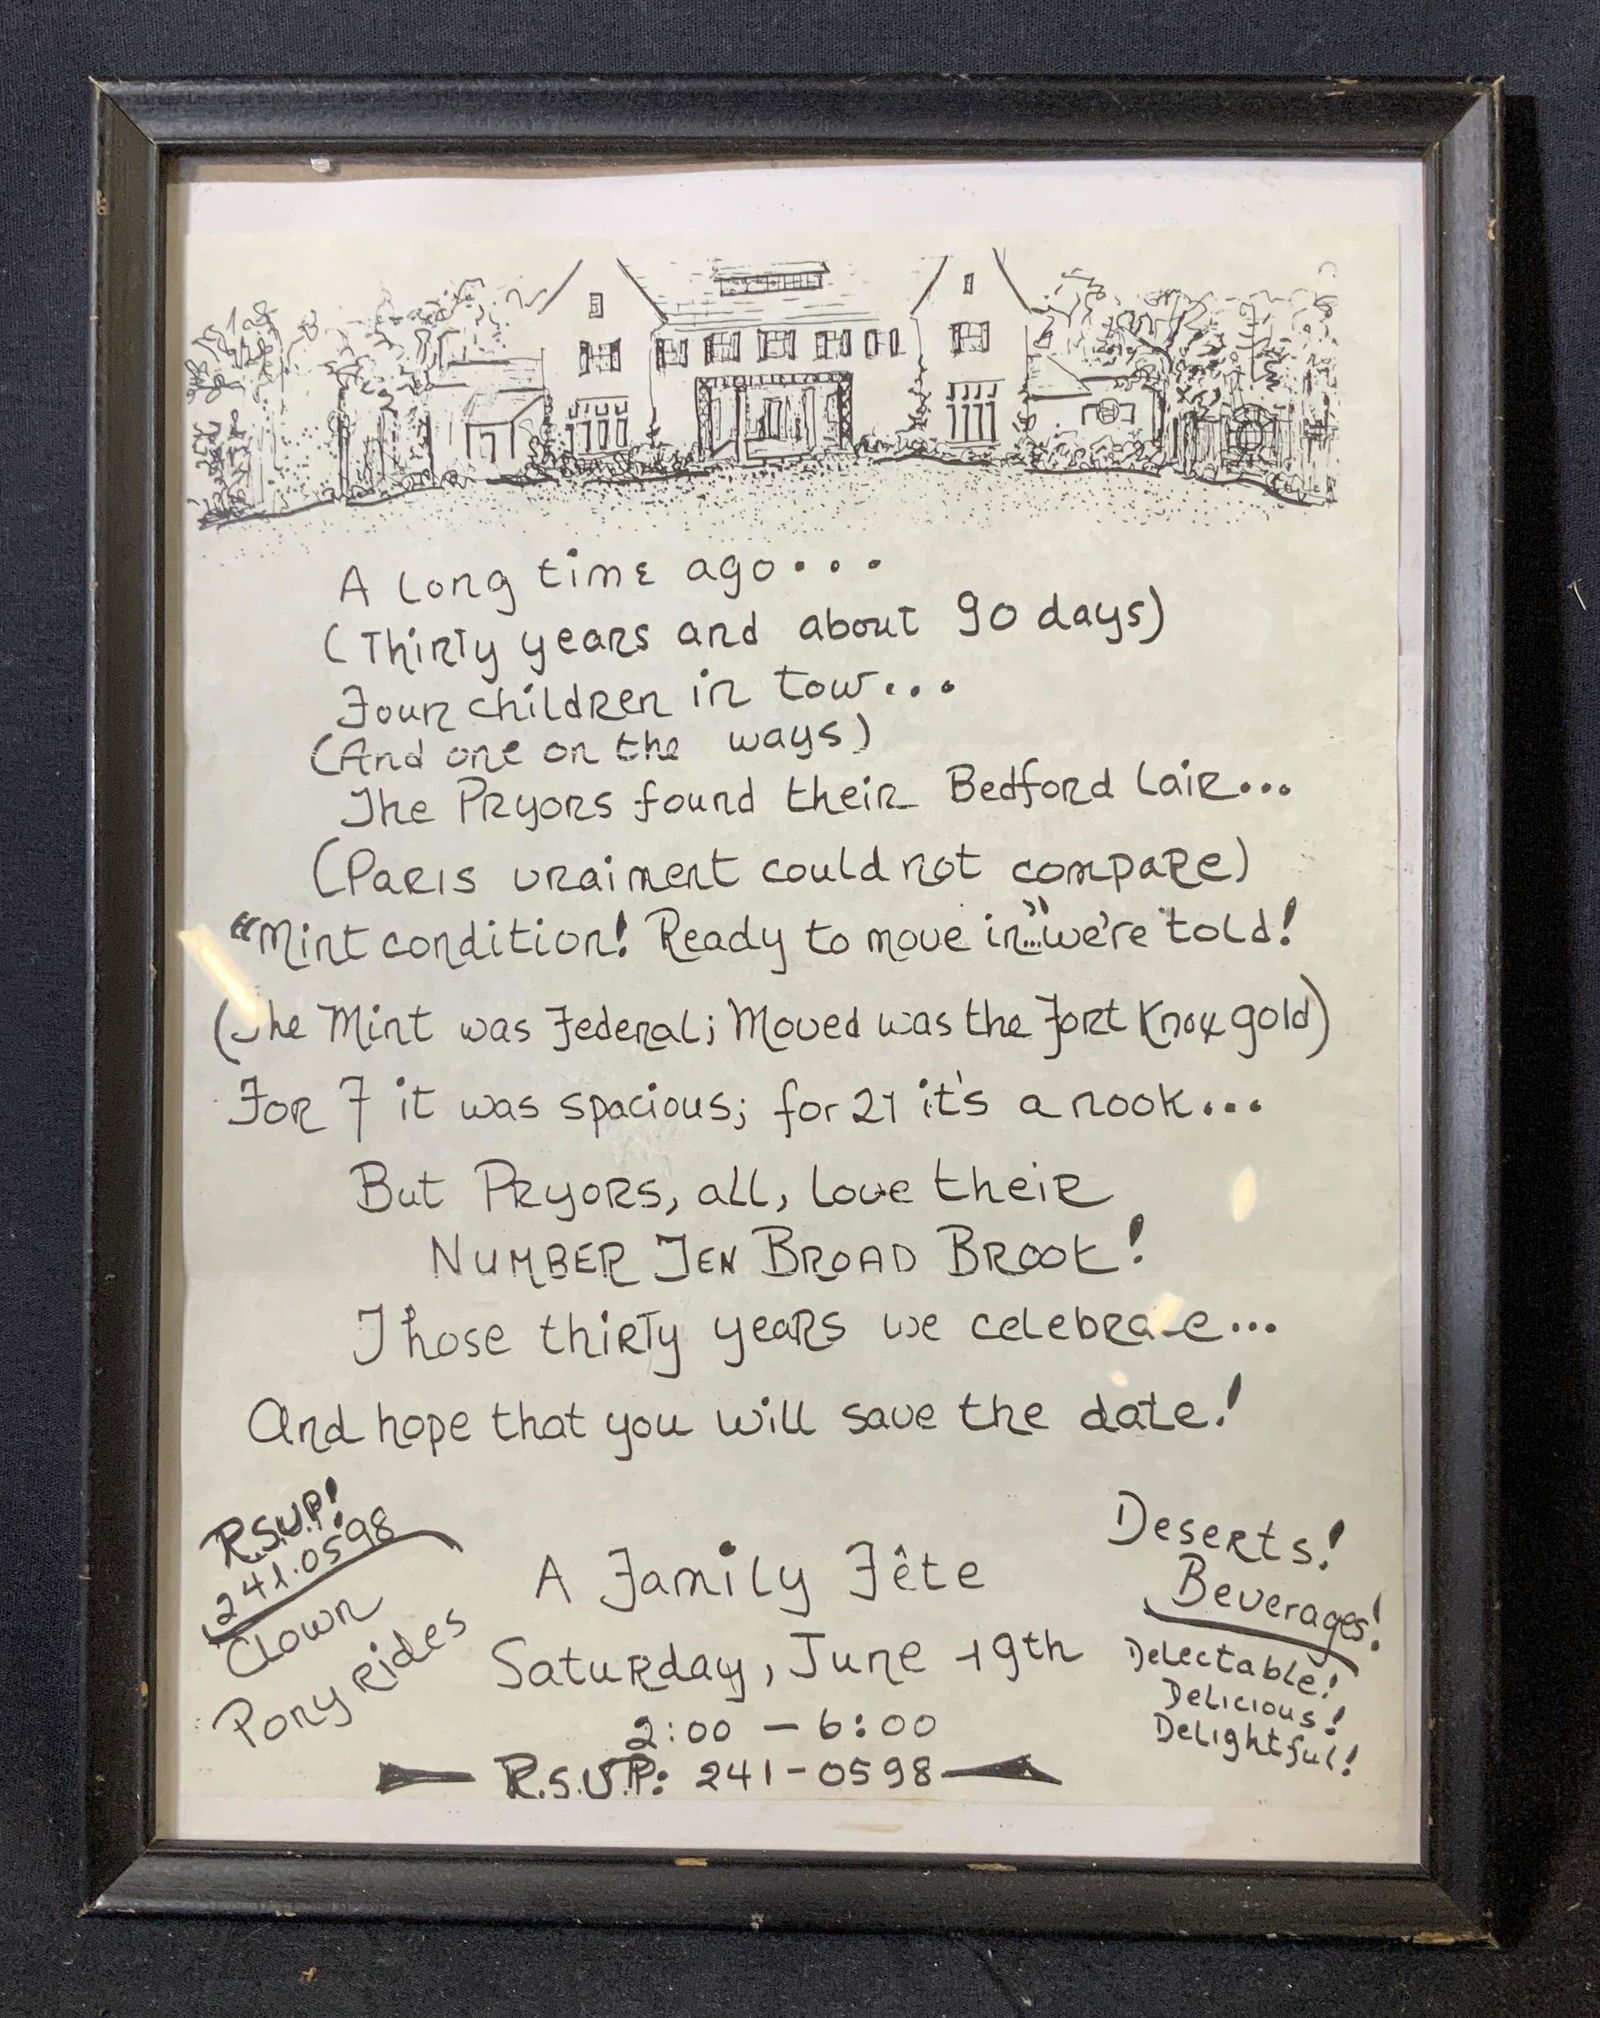 A long time ago...
(Thirty years and about 90 days)
Four children in tow...
(And one on the ways)
The Pryors found their Bedford lair...
(Paris vraiment could not compare)
"Mint condition! Ready to move in..." we're told!
(The Mint was Federal; Moved was the Fort Knox gold)
For 7 it was spacious; for 21 it's a nook...
But Pryors, all, love their
NUMBER TEN BROAD BROOK!
Those thirty years we celebrate...
And hope that you will save the date!
R.S.V.P!
241.0598
Clown
Pony rides
A Family Fête
Saturday, June 19th
2:00 - 6:00
R.S.V.P: 241-0598
Deserts!
Beverages!
Delectable!
Delicious!
Delightful!